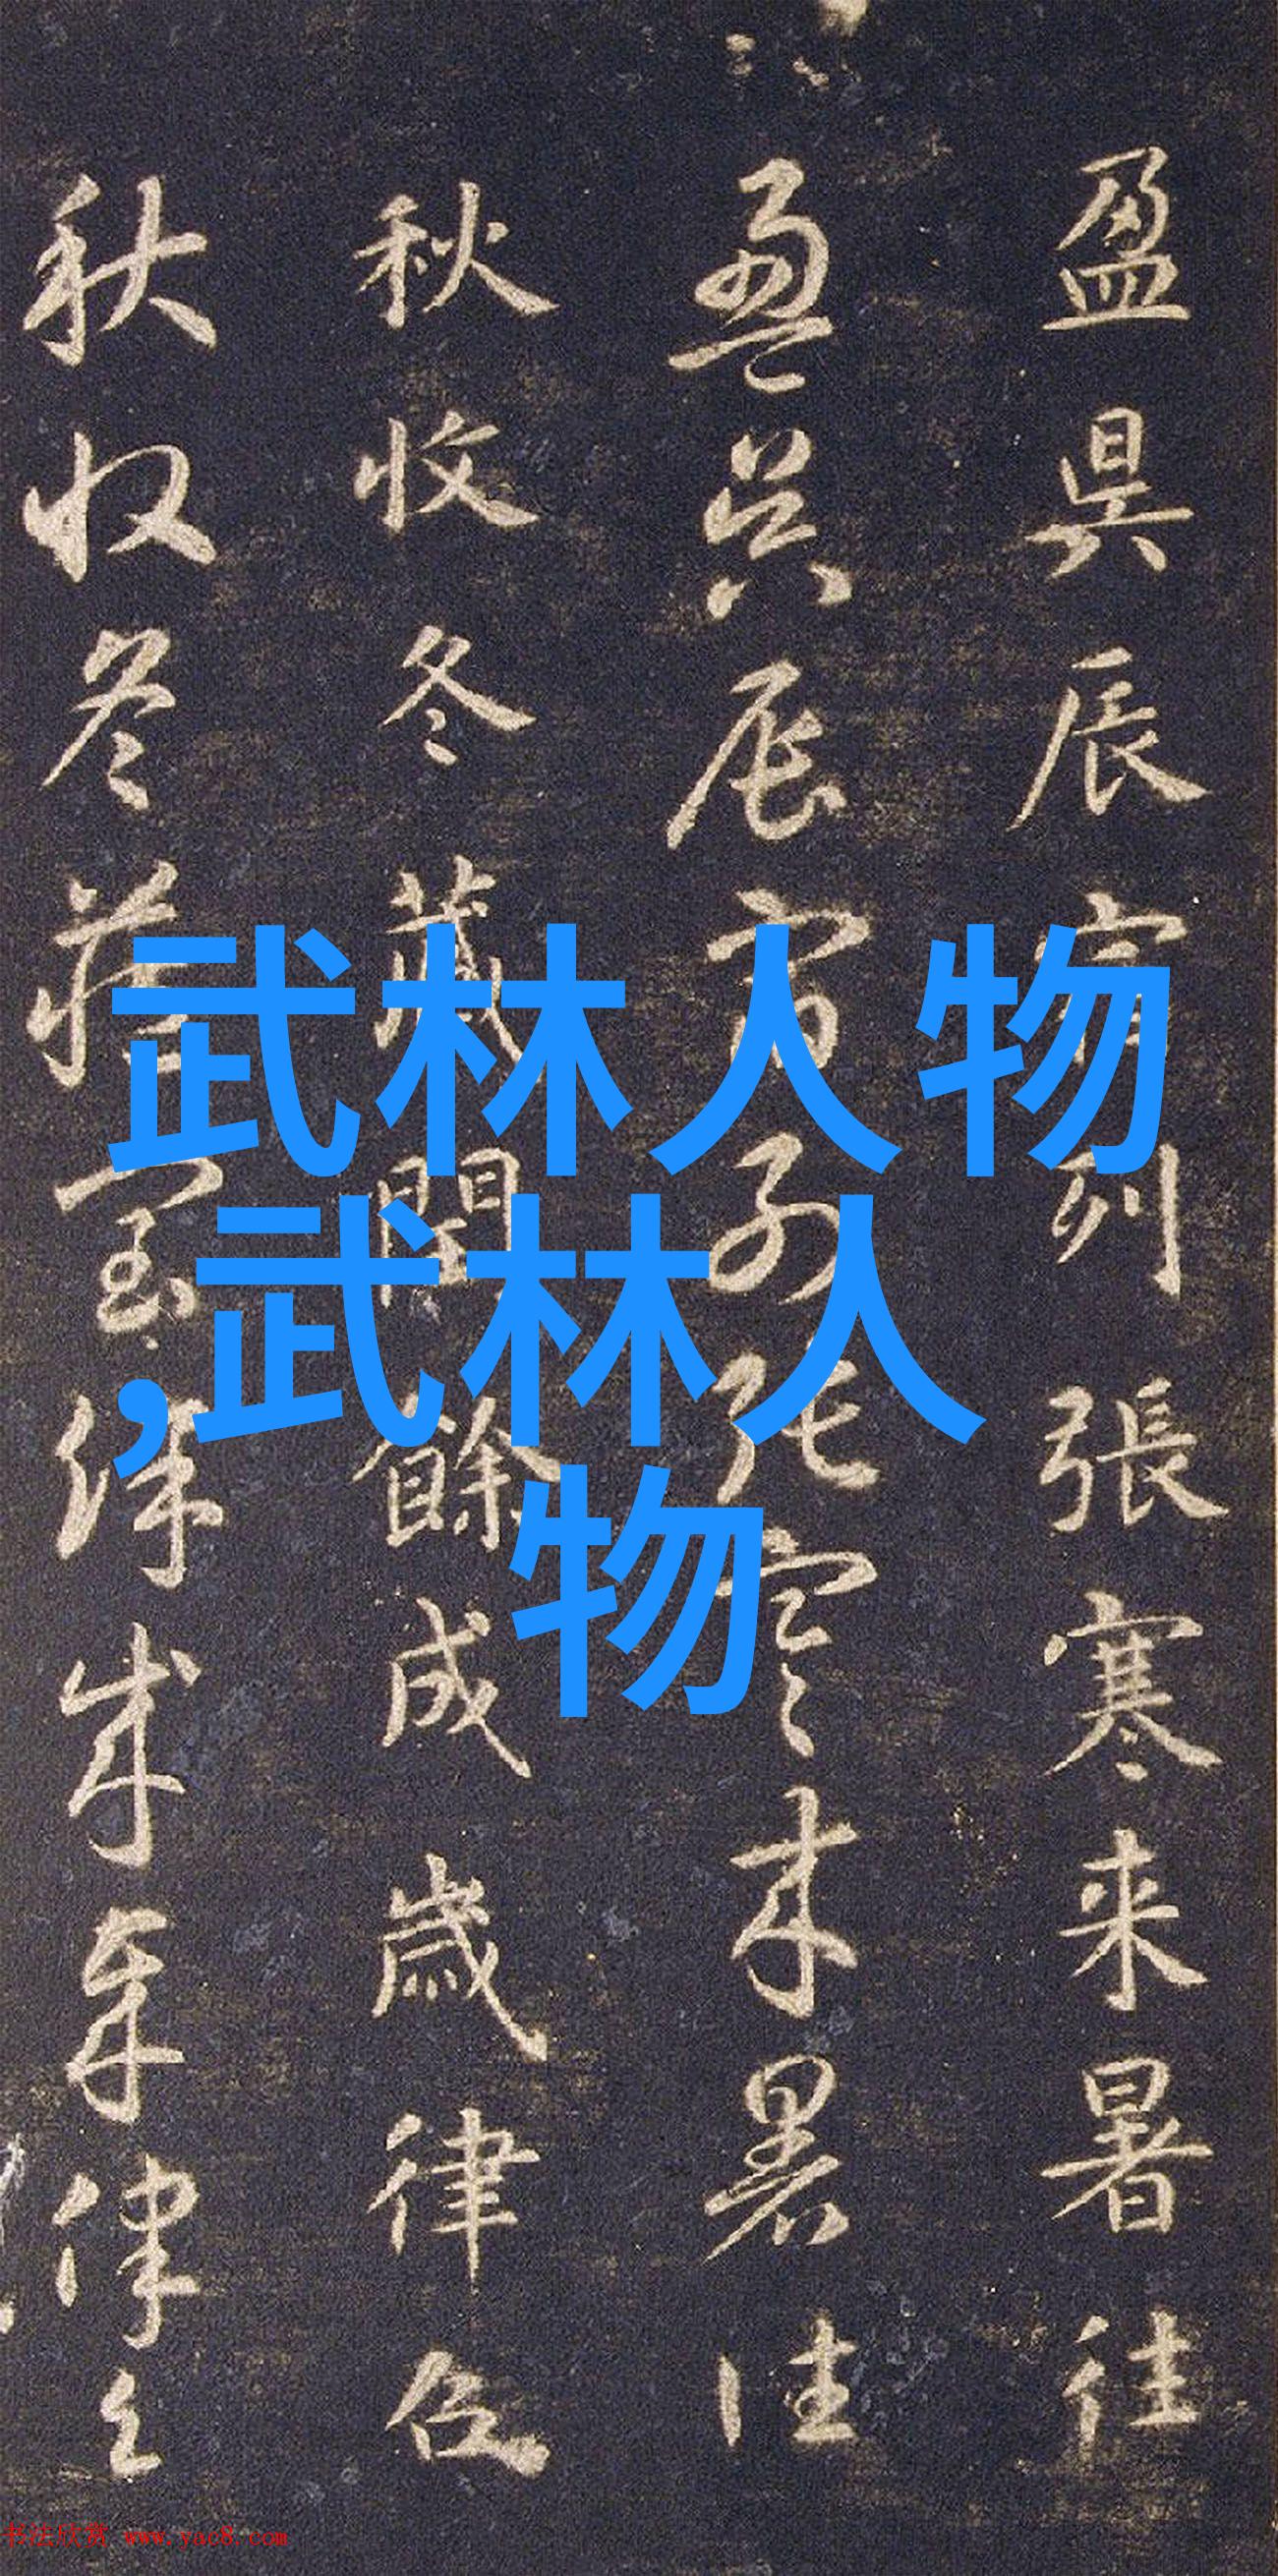 武林人物
,武林人
物
盈昃辰宿列張寒来暑往
盈昃辰宿列張寒来暑往
秋收冬藏閏餘成歲律召
秋收冬藏閏餘成歲律召
书法欣赏 www.yac8.com